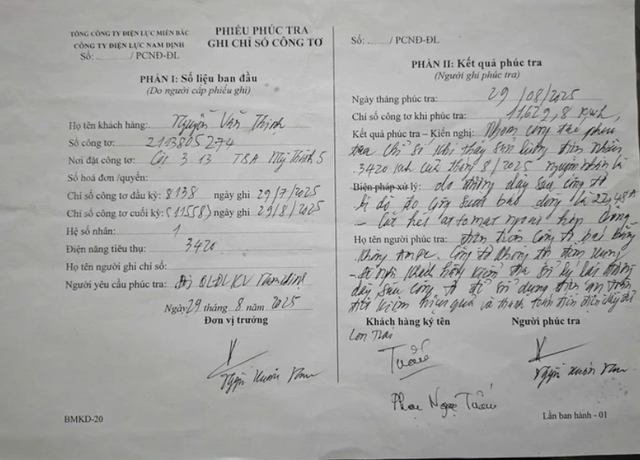 TỔNG CÔNG TY ĐIỆN LỰC MIỀN BẮC
CÔNG TY ĐIỆN LỰC NAM ĐỊNH
Số: ....../ PCNĐ-ĐL
PHIẾU PHÚC TRA
GHI CHỈ SỐ CÔNG TƠ
PHẦN I: Số liệu ban đầu
(Do người cấp phiếu ghi)
Họ tên khách hàng: Nguyễn Văn Thịnh
Số công tơ: 2113805274
Nơi đặt công tơ: Cột 3.13 TBA Mỹ Thịnh 5
Số hoá đơn /quyển:
Chỉ số công tơ đầu kỳ: 8138 ngày ghi 29/7/2025
Chỉ số công tơ cuối kỳ: (11558) ngày ghi 29/8/2025
Hệ số nhân: 1
Điện năng tiêu thụ: 3420
Họ tên người ghi chỉ số:
Người yêu cầu phúc tra: QLĐL KV
Ngày 29 tháng 8 năm 2025
Đơn vị trưởng
BMKD-20
Số: ....../ PCNĐ-ĐL
PHẦN II: Kết quả phúc tra
(Người ghi phúc tra)
Ngày tháng phúc tra: 29/08/2025
Chỉ số công tơ khi phúc tra: 11629,8 Kwh
Kết quả phúc tra – Kiến nghị: Nhóm công tác phúc
tra chỉ số thấy sản lượng điện nhận
3420 kwh cuối tháng 8/2025 nguyên nhân là
Biện pháp xử lý: do đường dây sau công tơ
bị dò do còn dòng là 22,48A
- Cắt hết aptomat ngoài hộp công
Họ tên người phúc tra: công tơ báo bằng
không Ampe. Công tơ không
- Đề nghị khách hàng kiểm tra xử lý lại đường
dây sau công tơ để sử dụng điện an toàn
tiết kiệm hiệu quả và thanh toán tiền điện đầy đủ
Khách hàng ký tên
Người phúc tra
Con Trai
Tuấn
Phạm Ngọc Tuấn
Lần ban hành - 01